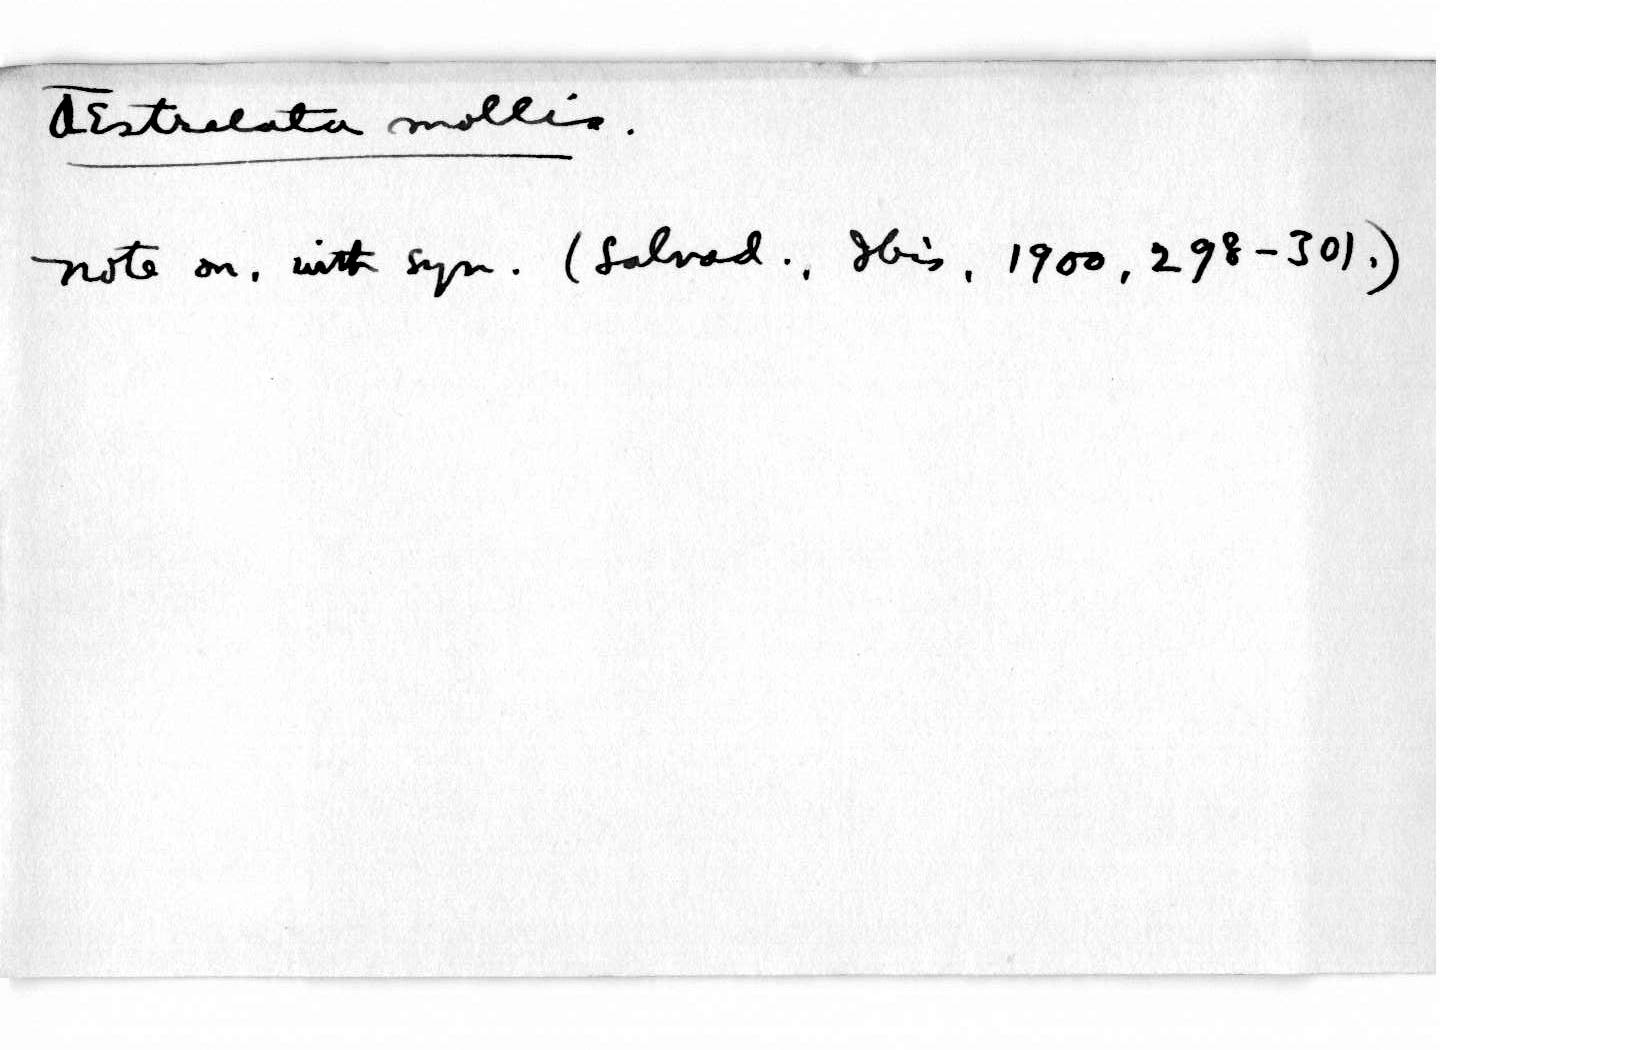 Æstrelata mollis.
Note on, with syn. (Salvad., Ibis, 1900, 298-301.)